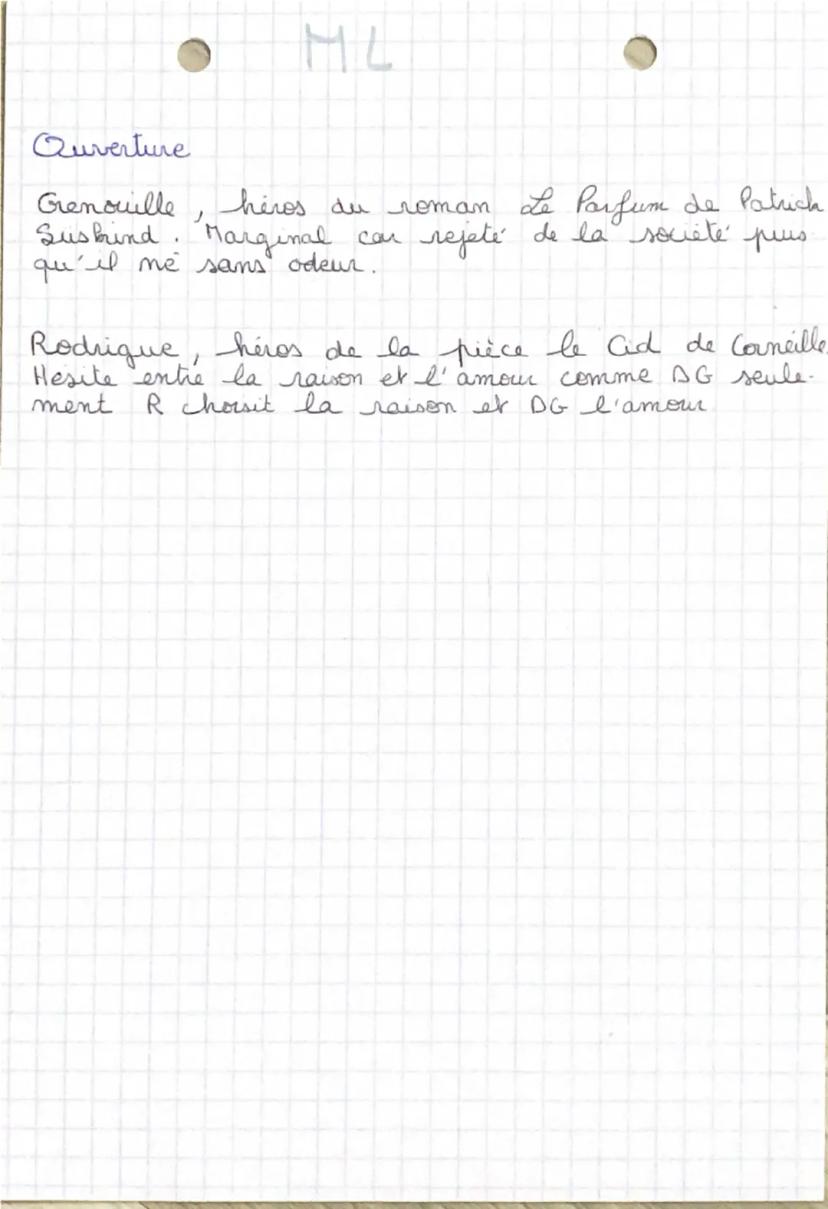 ML
Ouverture
Grenouille, héros du roman Le Parfum de Patrick
Suskind. Marginal car rejeté de la société puis
qu'il né sans odeur.
Rodrigue, héros de la pièce le Cid de Corneille.
Hésite entre la raison et l'amour comme DG seule-
ment R choisit la raison et DG l'amour